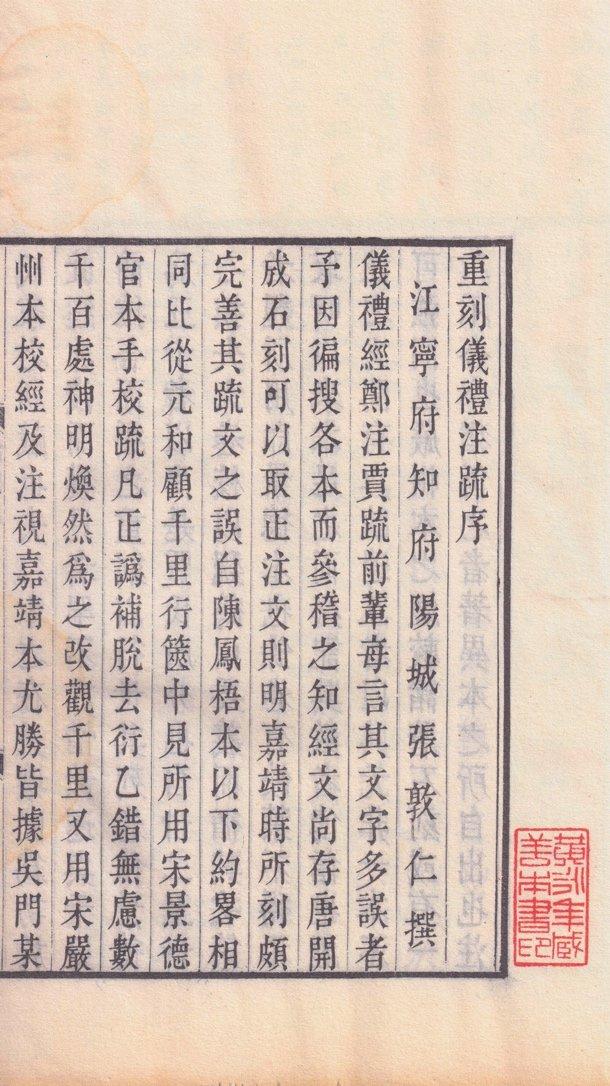 重刻儀禮注疏序
江寧府知府陽城張敦仁撰
儀禮經鄭注賈疏前輩每言其文字多誤者
予因徧搜各本而參稽之知經文尚存唐開
成石刻可以取正注文則明嘉靖時所刻頗
完善其疏文之誤自陳鳳梧本以下約畧相
同比從元和顧千里行篋中見所用宋景德
官本手校疏凡正譌補脫去衍乙錯無慮數
千百處神明煥然爲之改觀千里又用宋嚴
州本校經及注視嘉靖本尤勝皆據吳門某
黃永年藏
善本書印